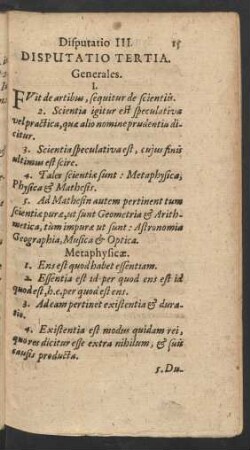 Disputatio III. 15
DISPUTATIO TERTIA.
Generales.
I.
FVit de artibus, sequitur de scientiis.
2. Scientia igitur est speculativa
vel practica, quæ alio nomine prudentia di-
citur.
3. Scientia speculativa est, cujus finis
ultimus est scire.
4. Tales scientiæ sunt: Metaphysica,
Physica & Mathesis.
5. Ad Mathesin autem pertinent tum
scientiæ puræ, ut sunt Geometria & Arith-
metica, tum impuræ ut sunt: Astronomia
Geographia, Musica & Optica.
Metaphysicæ.
1. Ens est quod habet essentiam.
2. Essentia est id per quod ens est id
quod est, h.e. per quod est ens.
3. Ad eam pertinet existentia & dura-
tio.
4. Existentia est modus quidam rei,
quo res dicitur esse extra nihilum, & suis
causis producta.
5. Du-